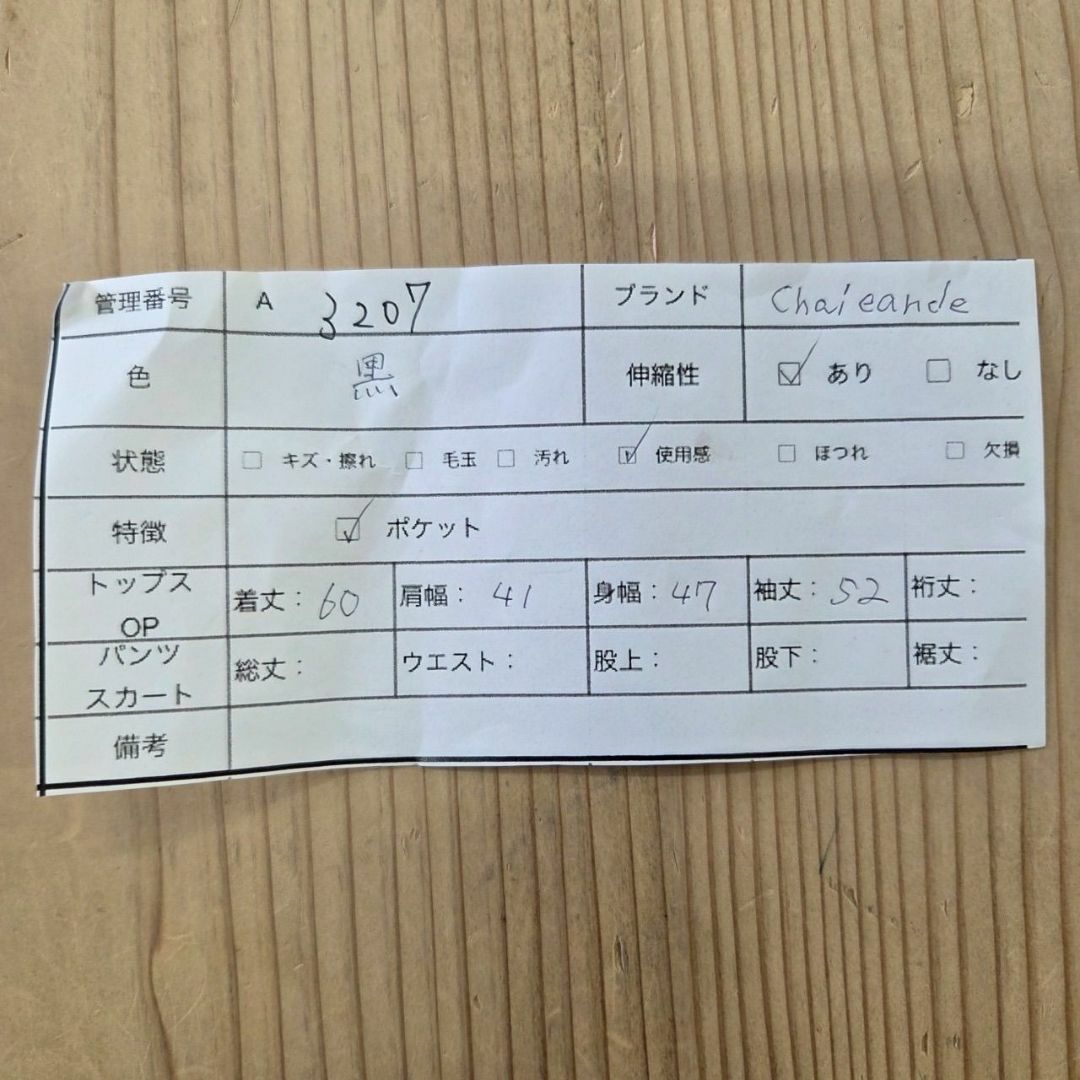 管理番号 A 3207 ブランド Chaieande
色 黒 伸縮性 ☑ あり ☐ なし
状態 ☐ キズ・擦れ ☐ 毛玉 ☐ 汚れ ☑ 使用感 ☐ ほつれ ☐ 欠損
特徴 ☑ ポケット
トップス
OP
着丈: 60 肩幅: 41 身幅: 47 袖丈: 52 裄丈:
パンツ
スカート
総丈: ウエスト: 股上: 股下: 裾丈:
備考